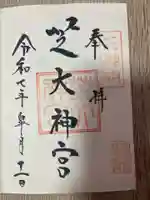 奉拝
芝大神宮
令和七年皐月十一日